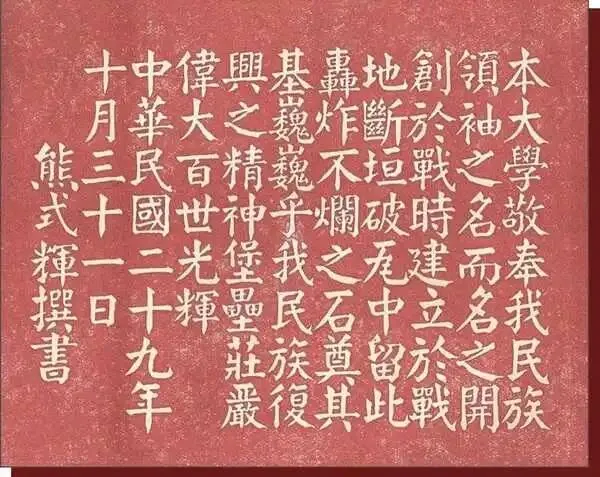 本大學敬奉我民族
領袖之名而名之開
創於戰時建立於戰
地斷垣破瓦中留此
轟炸不爛之石奠其
基巍巍乎我民族復
興之精神堡壘莊嚴
偉大百世光輝
中華民國二十九年
十月三十一日
熊式輝撰書